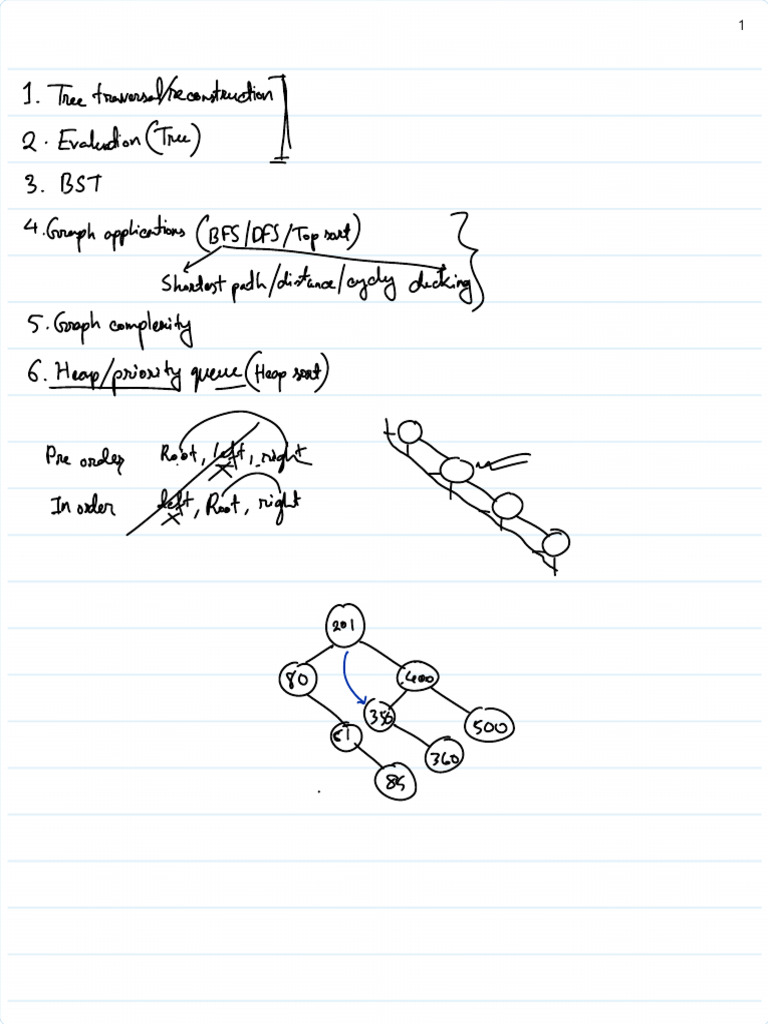 1
1. Tree traversal/reconstruction
2. Evaluation (Tree)
3. BST
4. Graph applications (BFS/DFS/Top sort)
Shortest path/distance/cycly checking
5. Graph complexity
6. Heap/priority queue (Heap sort)
Pre order Root, left, right
In order left, Root, right
201
80 400
350 500
81 360
85